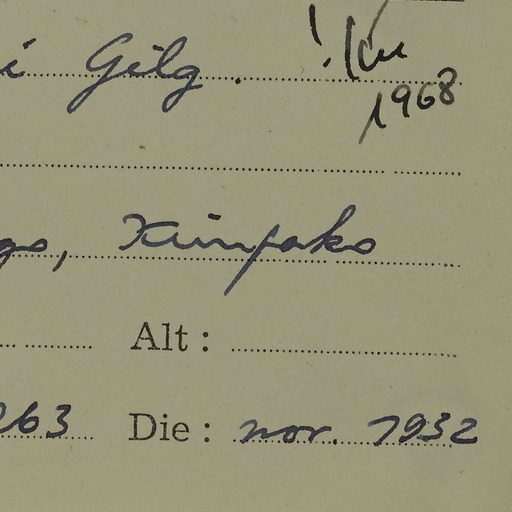 i Gilg.
1968
Kimpako
Alt :
263 Die : nov. 1932